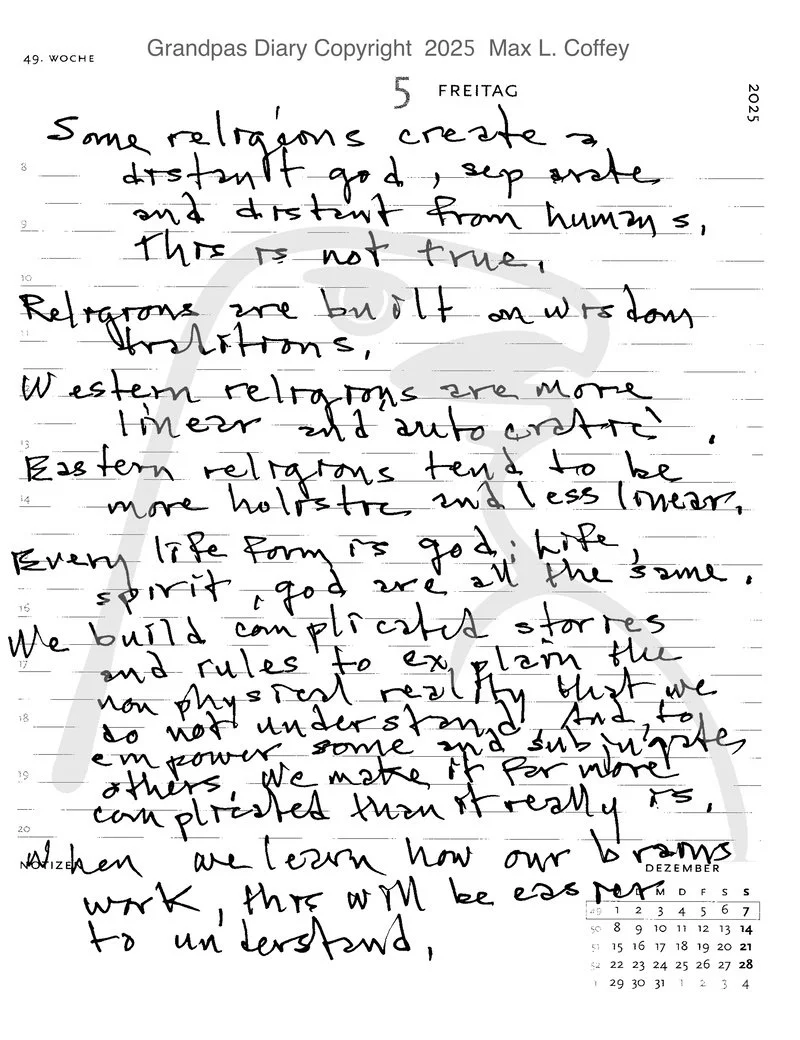 Grandpas Diary Copyright 2025 Max L. Coffey
49. WOCHE
5 FREITAG
2025
Some religions create a
distant god, separate
and distant from humans.
This is not true.
Religions are built on wisdom
traditions.
Western religions are more
linear and autocratic.
Eastern religions tend to be
more holistic and less linear.
Every life form is god; Life,
spirit, god are all the same.
We build complicated stories
and rules to explain the
non physical reality that we
do not understand. And to
empower some and subjugate
others. We make it far more
complicated than it really is.
When we learn how our brains
work, this will be easier
to understand.
8
9
10
11
13
14
16
17
18
19
20
NOTIZEN
DEZEMBER
M D F S S
49 1 2 3 4 5 6 7
50 8 9 10 11 12 13 14
51 15 16 17 18 19 20 21
52 22 23 24 25 26 27 28
1 29 30 31 1 2 3 4